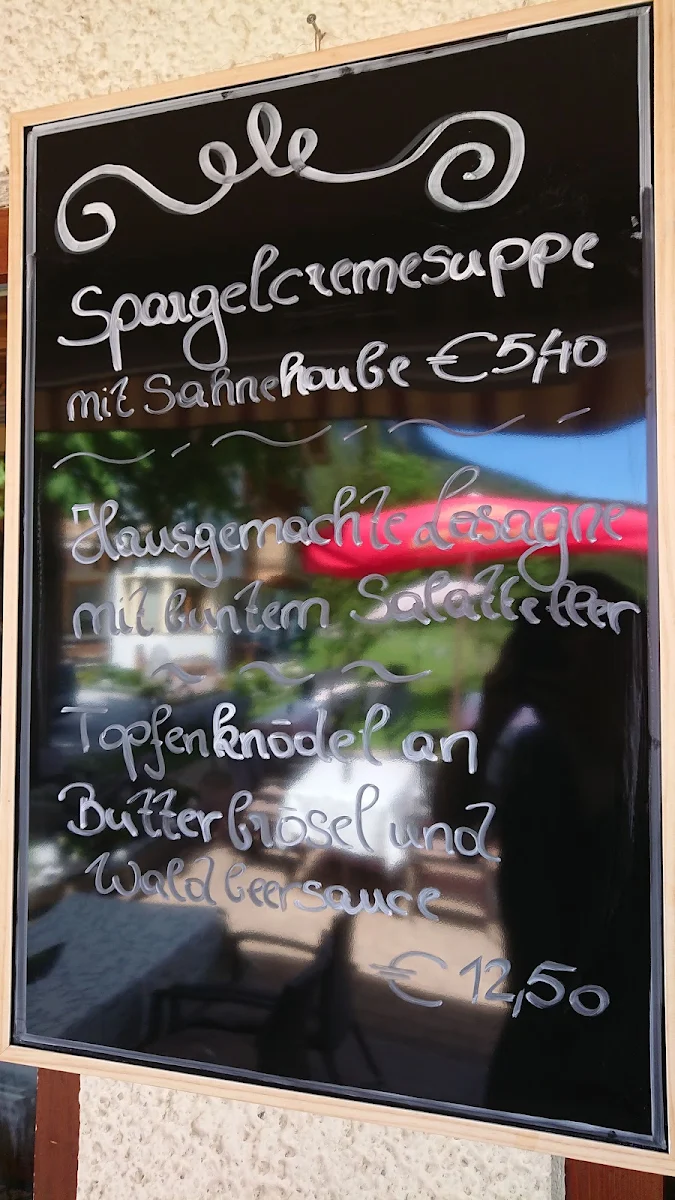 Spargelcremesuppe
mit Sahnehaube €5,40
Hausgemachte Lasagne
mit buntem Salatteller
Topfenknödel an
Butterbrösel und
Waldbeersauce
€ 12,50